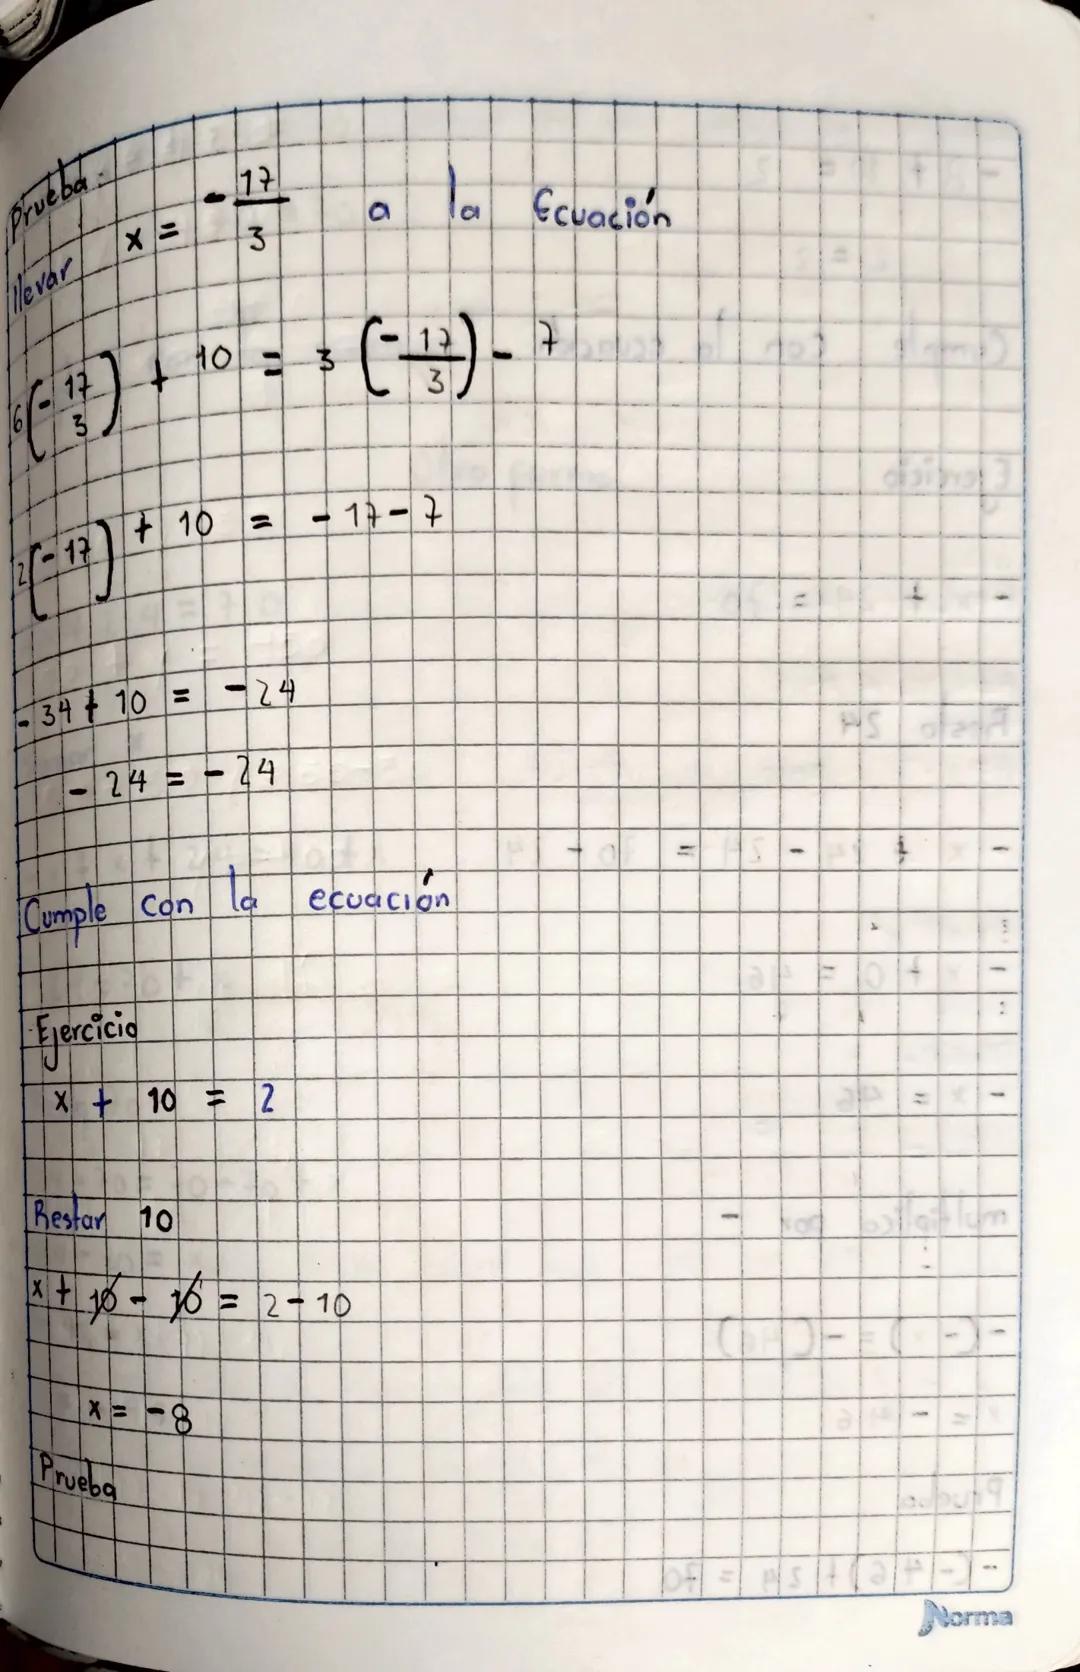 Prueba:
llevar x = - 17/3 a la Ecuación
6(- 17/3) + 10 = 3 (- 17/3) - 7
2(- 17) + 10 = - 17 - 7
- 34 + 10 = - 24
- 24 = - 24
Cumple con la ecuación
Ejercicio
x + 10 = 2
Restar 10
x + 10 - 10 = 2 - 10
x = - 8
Prueba
Norma